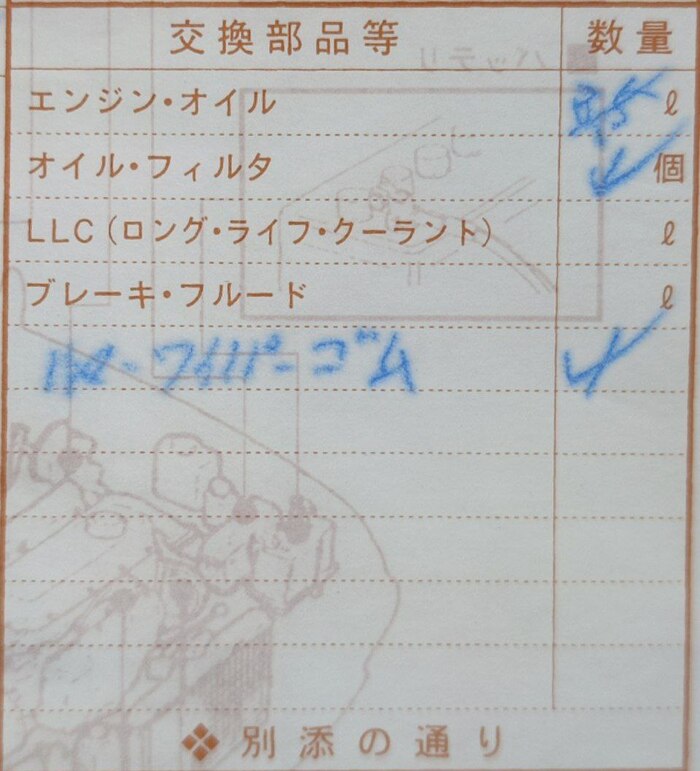 交換部品等 数量
エンジン・オイル ℓ
オイル・フィルタ 個
LLC(ロング・ライフ・クーラント) ℓ
ブレーキ・フルード ℓ
ワイパーゴム
❖別添の通り
バッテリ